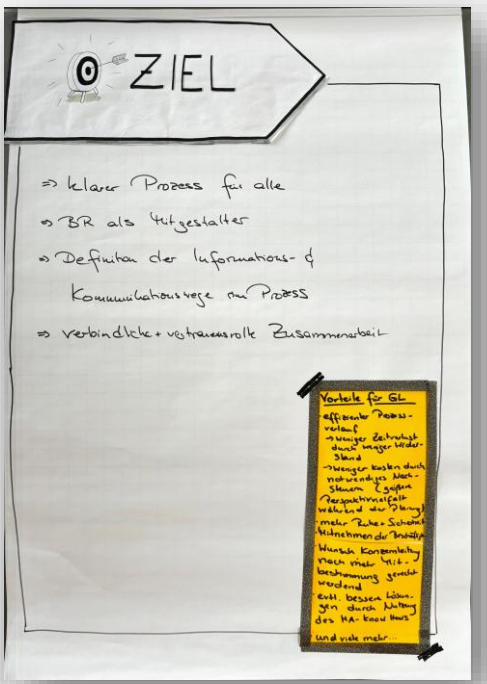 ZIEL
=> klarer Prozess für alle
=> BR als Mitgestalter
=> Definition der Informations- &
Kommunikationswege im Prozess
=> verbindliche + vertrauensvolle Zusammenarbeit
Vorteile für GL
- effizienter Prozess-
verlauf
-> weniger Zeitverlust
durch weniger Wider-
stand
-> weniger Kosten durch
notwendiges Nach-
steuern (größere
Perspektivvielfalt
während der Planung)
- mehr Ruhe + Sicherheit
Mitnehmen der
- Wunsch Konzernleitung
nach mehr Mit-
bestimmung gerecht
werdend
- evtl. bessere Lösun-
gen durch Nutzung
des MA-Know Hows
und viele mehr...